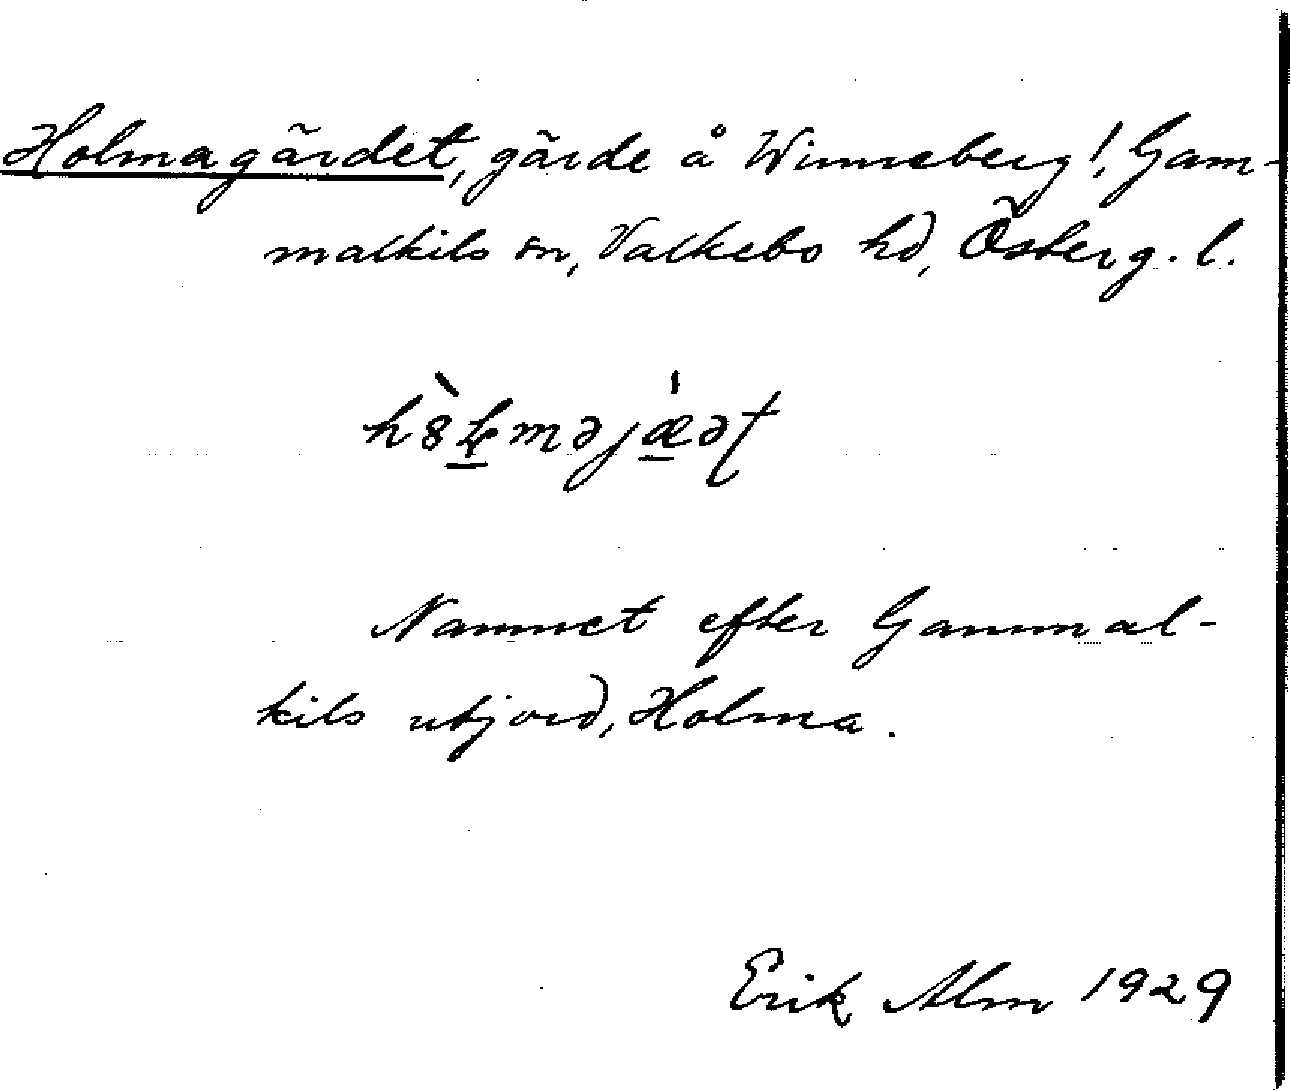 Holmagärdet, gärde å Winneberg!, Gam-
malkils sn, Valkebo hd, Österg. l.
Namnet efter Gammal-
kils utjord, Holma.
Erik Alm 1929